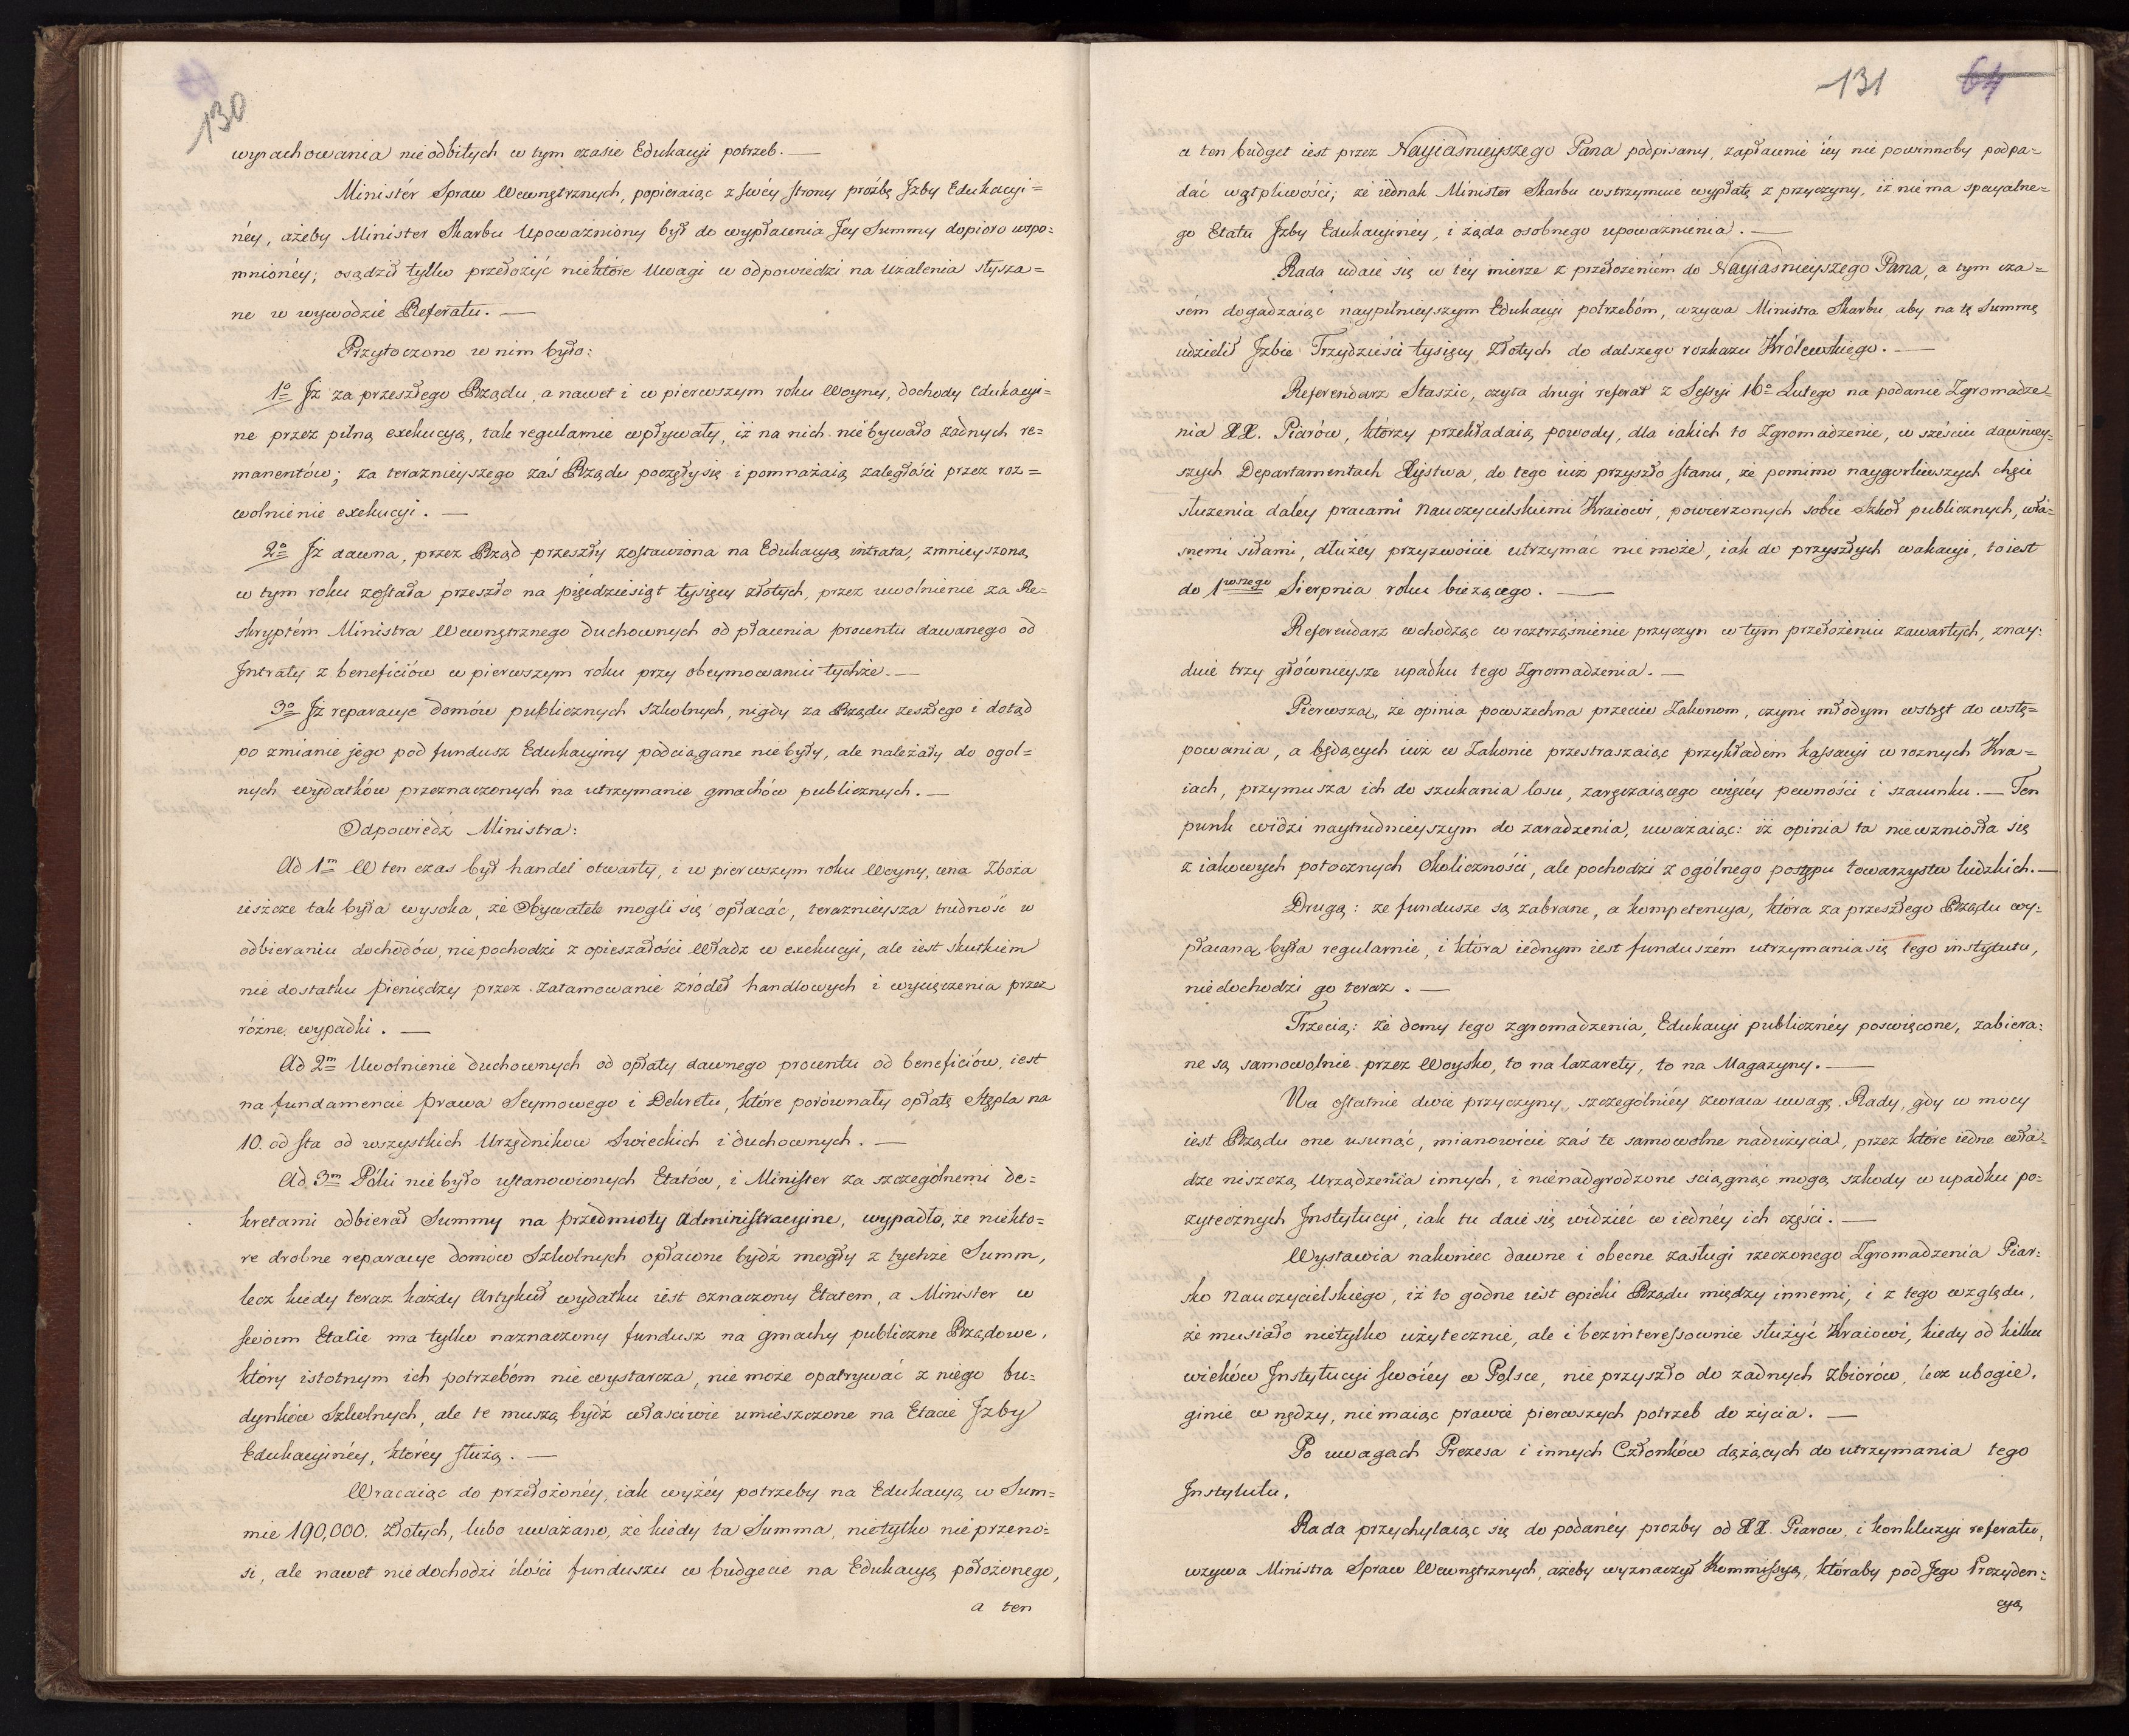 130
wyrachowania nieodbitych w tym czasie Edukacyi potrzeb. —
Ministér Spraw Wewnętrznych, popieraiąc z swéy strony prozbę Jzby Edukacyi=
néy, ażeby Minister Skarbu Upoważniony był do wypłacenia Jey Summy dopioro wspo=
mnionéy; osądził tylko przełożyć niektóre Uwagi w odpowiedzi na Użalenia słysza=
ne w wywodzie Referatu. —
Przytoczono w nim było:
1o Jż za przeszłego Rządu, a nawet i w pierwszym roku Woyny, dochody Edukacyi=
ne przez pilną exekucyą, tak regularnie wpływały, iż na nich niebywało żadnych re=
manentów; za teraznieyszego zaś Rządu poczęły się i pomnażaią zaległości przez roz=
wolnienie exekucyi. —
2o Jż dawna, przez Rząd przeszły zostawiona na Edukacyą intrata, zmnieyszoną
w tym roku została przeszło na pięćdziesiąt tysięcy złotych, przez uwolnienie za Re=
skryptém Ministra Wewnętrznego duchownych od płacenia procentu dawanego od
Jntraty z beneficiów w pierwszym roku przy obeymowaniu tychże. —
3o Jż reparacye domów publicznych szkolnych, nigdy za Rządu zeszłego i dotąd
po zmianie jego pod fundusz Edukacyiny podciągane niebyły, ale należały do ogol=
nych wydatków przeznaczonych na utrzymanie gmachów publicznych. —
Odpowiedź Ministra:
Ad 1m W ten czas był handel otwarty, i w pierwszym roku Woyny, cena Zboża
ieszcze tak była wysoka, że Obywatele mogli się opłacać, teraznieysza trudność w
odbieraniu dochodów, nie pochodzi z opieszałości Władz w exekucyi, ale iest skutkiem
nie dostatku pieniędzy przez zatamowanie źródeł handlowych i wycięczenia przez
różne wypadki. —
Ad 2m Uwolnienie duchownych od opłaty dawnego procentu od beneficiów, iest
na fundamencie prawa Seymowego i Dekretu, które porównały opłatę Stępla na
10. od sta od wszystkich Urzędnikow Swieckich i duchownych. —
Ad 3m Póki nie było ustanowionych Etatów, i Minister za szczególnemi de=
kretami odbierał Summy na przedmioty Administracyine, wypadło, że niekto=
re drobne reparacye domow Szkolnych opłacone bydź mogły z tychże Summ,
lecz kiedy teraz każdy Artykuł wydatku iest oznaczony Etatem, a Minister w
swoim Etacie ma tylko naznaczony fundusz na gmachy publiczne Rządowe,
który istotnym ich potrzebóm nie wystarcza, nie może opatrywać z niego bu=
dynków Szkolnych, ale te muszą bydź właściwie umieszczone na Etacie Jzby
Edukacyinéy, któréy służą. —
Wracaiąc do przełożonéy, iak wyżéy potrzeby na Edukacyą w Sum=
mie 190,000. Złotych, lubo uważano, że kiedy ta Summa, nietylko nie przeno=
si, ale nawet niedochodzi ilości funduszu w budgecie na Edukacyą położonego,
a ten
131 64
a ten budget iest przez Nayiasnieyszego Pana podpisany, zapłacenie iéy nie powinnoby podpa=
dać wątpliwości; że iednak Minister Skarbu wstrzymuie wypłatę z przyczyny, iż niema specyalne=
go Etatu Jzby Edukacyinéy, i żąda osobnego upoważnienia. —
Rada udaie się w téy mierze z przełożeniem do Nayiasnieyszego Pana, a tym cza=
sém dogadzaiąc naypilnieyszym Edukacyi potrzebóm, wzywa Ministra Skarbu, aby na tę Summę
udzielił Jzbie Trzydzieści tysięcy Złotych do dalszego rozkazu Królewskiego. —
Referendarz Staszic, czyta drugi referat z Sessyi 16o Lutego na podanie Zgromadze=
nia XX. Piarów, którzy przekładaią powody, dla iakich to Zgromadzenie, w sześciu dawniey=
szych Departamentach Xięstwa, do tego iuż przyszło stanu, że pomimo naygorliwszych chęci
służenia daléy pracami Nauczycielskiemi Kraiowi, powierzonych sobie Szkół publicznych, wła=
snemi siłami, dłużéy przyzwoicie utrzymać nie może, iak do przyszłych wakacyi, to iest
do 1wszego Sierpnia roku bieżącego. —
Referendarz wchodząc w roztrząśnienie przyczyn w tym przełożeniu zawartych, znay=
duie trzy główneiysze upadku tego Zgromadzenia. —
Pierwszą, że opinia powszechna przeciw Zakonom, czyni młodym wstręt do wstę=
powania, a będących iuż w Zakonie przestraszaiąc przykładem kassacyi w roznych Kra=
iach, przymusza ich do szukania losu, zaręczaiącego więcéy pewności i szacunku. — Ten
punk widzi naytrudnieyszym do zaradzenia, uważaiąc: iż opinia ta niewzniosła się
z iakowych potocznych Okoliczności, ale pochodzi z ogólnego postępu towarzystw ludzkich. —
Drugą: że fundusze są zabrane, a kompetencya, która za przeszłego Rządu wy=
płacaną była regularnie, i która iednym iest funduszém utrzymania się tego instytutu,
niedochodzi go teraz. —
Trzecią: że domy tego zgromadzenia, Edukacyi publicznéy poswięcone, zabiera=
ne są samowolnie przez Woysko, to na lazarety, to na Magazyny. —
Na ostatnie dwie przyczyny, szczególniéy zwraca uwagę Rady, gdy w mocy
iest Rządu one usunąć, mianowicie zaś te samowolne nadużycia, przez które iedne wła=
dze niszczą Urządzenia innych, i nienadgrodzone sciągnąć mogą szkody w upadku po=
zytecznych Jnstytucyi, iak tu daie się widzieć w iednéy ich części. —
Wystawia nakoniec dawne i obecne zasługi rzeczonego Zgromadzenia Piar=
sko Nauczycielskiego, iż to godne iest opieki Rządu między innemi, i z tego względu,
że musiało nietylko użytecznie, ale i bezinteressownie służyć Kraiowi, kiedy od kilku
wieków Jnstytucyi swoiéy w Polsce, nie przyszło do żadnych Zbiorów, lecz ubogie,
ginie w nędzy, nie maiąc prawie pierwszych potrzeb do życia. —
Po uwagach Prezesa i innych Członków dążących do utrzymania tego
Jnstytutu,
Rada przychylaiąc się do podanéy prozby od XX. Piarow, i konkluzyi referatu,
wzywa Ministra Spraw Wewnętrznych, ażeby wyznaczył Kommissyą, któraby pod Jego Prezyden=
cyą